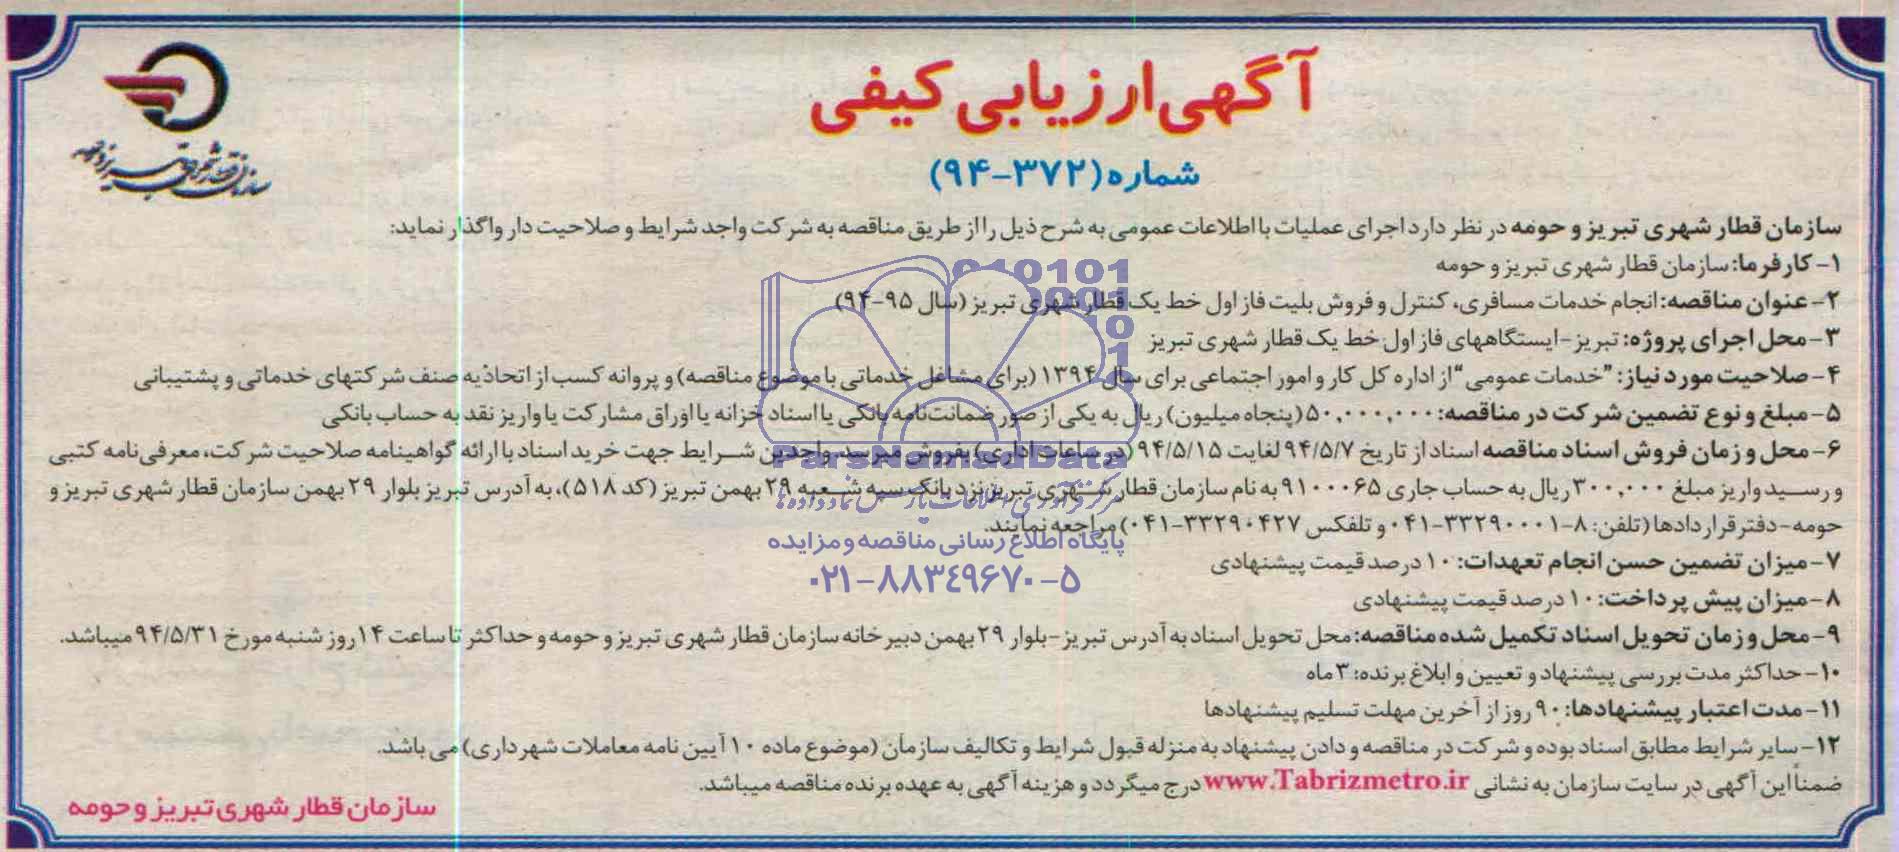 آگهی ارزیابی کیفی
شماره (۳۷۲-۹۴)
سازمان قطار شهری تبریز و حومه
سازمان قطار شهری تبریز و حومه در نظر دارد اجرای عملیات با اطلاعات عمومی به شرح ذیل را از طریق مناقصه به شرکت واجد شرایط و صلاحیت دار واگذار نماید:
۱- کارفرما: سازمان قطار شهری تبریز و حومه
۲- عنوان مناقصه: انجام خدمات مسافری، کنترل و فروش بلیت فاز اول خط یک قطار شهری تبریز (سال ۹۵-۹۴)
۳- محل اجرای پروژه: تبریز-ایستگاههای فاز اول خط یک قطار شهری تبریز
۴- صلاحیت مورد نیاز: "خدمات عمومی" از اداره کل کار و امور اجتماعی برای سال ۱۳۹۴ (برای مشاغل خدماتی با موضوع مناقصه) و پروانه کسب از اتحادیه صنف شرکتهای خدماتی و پشتیبانی
۵- مبلغ و نوع تضمین شرکت در مناقصه: ۵۰,۰۰۰,۰۰۰ (پنجاه میلیون) ریال به یکی از صور ضمانت‌نامه بانکی یا اسناد خزانه یا اوراق مشارکت یا واریز نقد به حساب بانکی
۶- محل و زمان فروش اسناد مناقصه اسناد از تاریخ ۹۴/۵/۷ لغایت ۹۴/۵/۱۵ (در ساعات اداری) بفروش میرسد. واجدین شرایط جهت خرید اسناد با ارائه گواهینامه صلاحیت شرکت، معرفی‌نامه کتبی
و رسید واریز مبلغ ۳۰۰,۰۰۰ ریال به حساب جاری ۹۱۰۰۰۶۵ به نام سازمان قطار شهری تبریز نزد بانک سپه شعبه ۲۹ بهمن تبریز (کد ۵۱۸)، به آدرس تبریز بلوار ۲۹ بهمن سازمان قطار شهری تبریز و
حومه- دفتر قراردادها (تلفن: ۸-۳۳۲۹۰۰۰۱-۰۴۱ و تلفکس ۳۳۲۹۰۴۲۷-۰۴۱) مراجعه نمایند.
۷- میزان تضمین حسن انجام تعهدات: ۱۰ درصد قیمت پیشنهادی
۸- میزان پیش پرداخت: ۱۰ درصد قیمت پیشنهادی
۹- محل و زمان تحویل اسناد تکمیل شده مناقصه: محل تحویل اسناد به آدرس تبریز- بلوار ۲۹ بهمن دبیرخانه سازمان قطار شهری تبریز و حومه و حداکثر تا ساعت ۱۴ روز شنبه مورخ ۹۴/۵/۳۱ میباشد.
۱۰- حداکثر مدت بررسی پیشنهاد و تعیین و ابلاغ برنده: ۳ ماه
۱۱- مدت اعتبار پیشنهادها: ۹۰ روز از آخرین مهلت تسلیم پیشنهادها
۱۲- سایر شرایط مطابق اسناد بوده و شرکت در مناقصه و دادن پیشنهاد به منزله قبول شرایط و تکالیف سازمان (موضوع ماده ۱۰ آیین نامه معاملات شهرداری) می باشد.
ضمناً این آگهی در سایت سازمان به نشانی www.Tabrizmetro.ir درج میگردد و هزینه آگهی به عهده برنده مناقصه میباشد.
سازمان قطار شهری تبریز و حومه
ParsNamadData
مرکز فرآوری اطلاعات پارس نماد داده ها
پایگاه اطلاع رسانی مناقصه و مزایده
۰۲۱-۸۸۳۴۹۶۷۰-۵